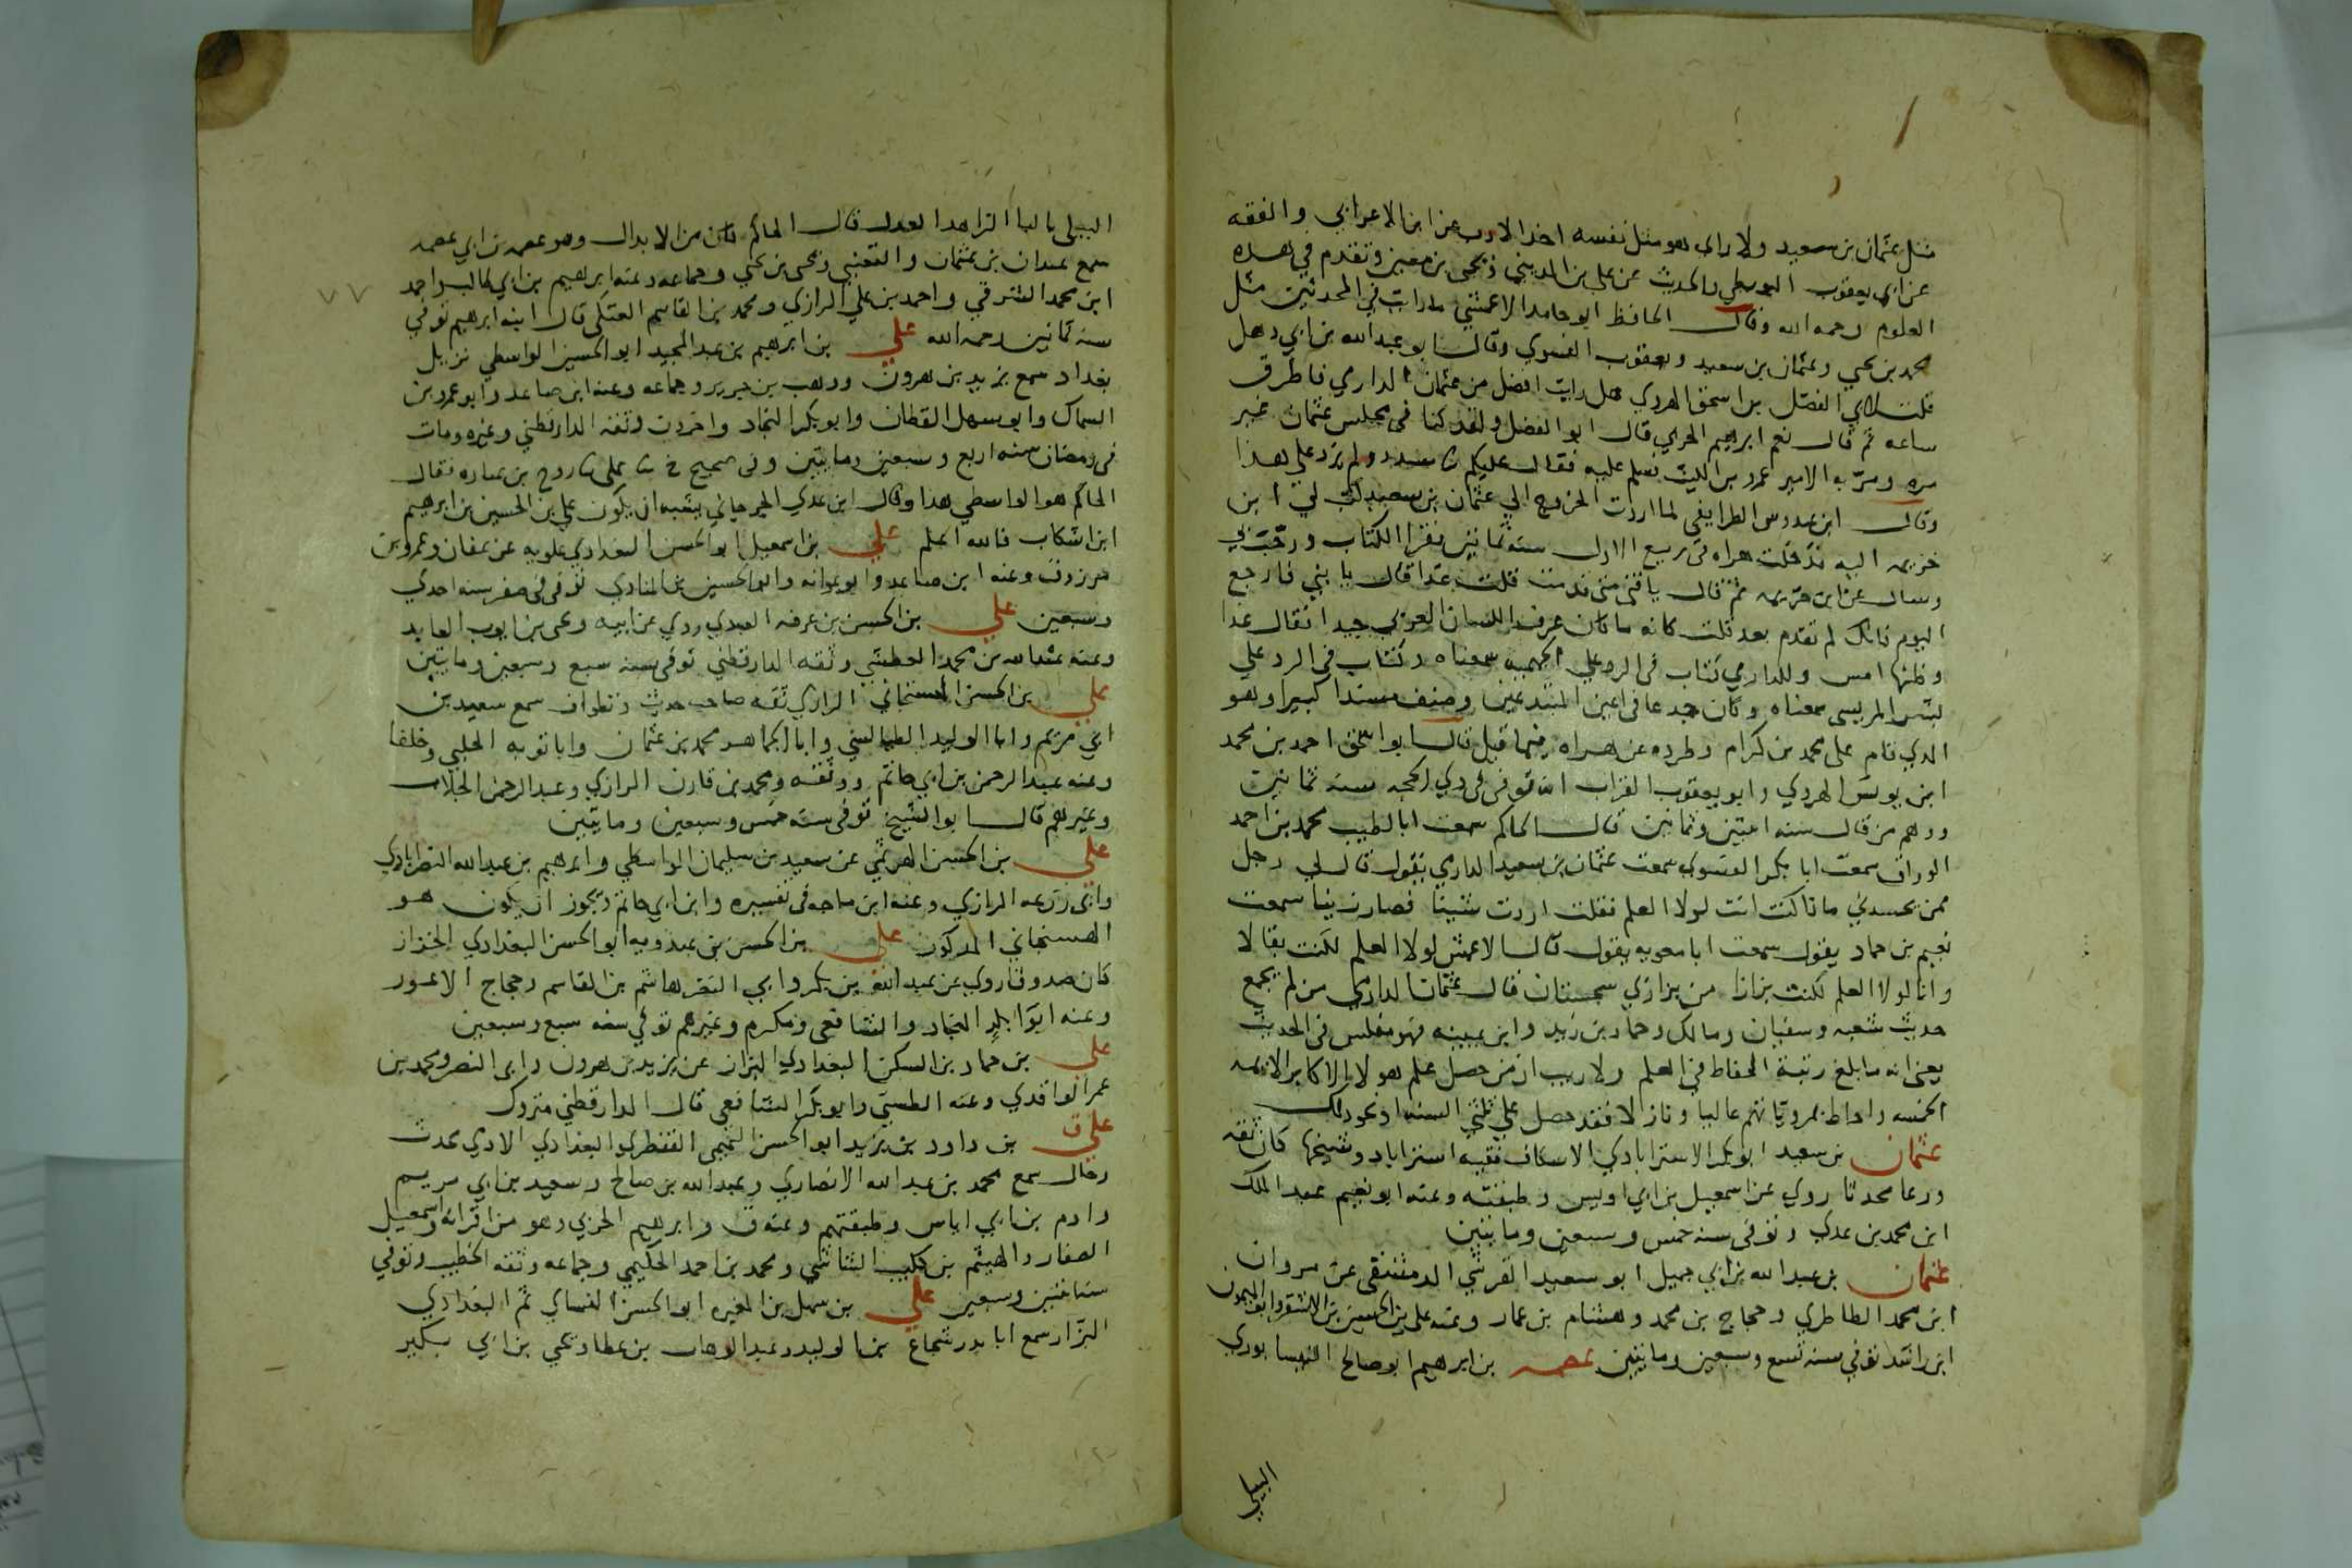 مثل عثمان بن سعيد ولا راى هو مثل نفسه اخذ الادب عن ابن الاعرابي والفقه
عن ابي يعقوب البويطي والحديث عن علي بن المديني ويحيى بن معين وتقدم في هذه
العلوم رحمه الله وقال الحافظ ابو حامد الاعمشي ما رايت في المحدثين مثل
محمد بن يحيي وعثمان بن سعيد ويعقوب الفسوي وقال ابو عبد الله بن ابي ذهل
قلت لابي الفضل بن اسحق الهروي هل رايت افضل من عثمان الدارمي فاطرق
ساعه ثم قال نعم ابرهيم الحربي قال ابو الفضل ولقد كنا في مجلس عثمان غير
مره ومر به الامير عمرو بن الليث فسلم عليه فقال عليكم ثنا مسدد ولم يزد علي هذا
وقال ابن عبدوس الطرايفي لما اردت الخروج الي عثمان بن سعيد كتب لي ابن
خزيمه اليه فدخلت هراه في ربيع الاول سنه ثمانين فقرا الكتاب ورحب بي
وسال عن ابن خزيمه ثم قال يا فتى متى قدمت قلت غدا قال يا بني فارجع
اليوم فانك لم تقدم بعد قلت كانه ما كان عرف اللسان العربي جيدا فقال غدا
وظنها امس وللدارمي كتاب في الرد علي الجهميه سمعناه وكتاب في الرد علي
بشر المريسي سمعناه وكان جذعا في اعين المبتدعين وصنف مسندا كبيرا وهو
الذي قام على محمد بن كرام وطرده عن هراه فيما قيل قال ابو اسحق احمد بن محمد
ابن يونس الهروي وابو يعقوب القراب انه توفى في ذي الحجه سنه ثمانين
ووهم من قال سنه اثنتين وثمانين قال الحاكم سمعت ابا الطيب محمد بن احمد
الوراق سمعت ابا بكر الفسوي سمعت عثمان بن سعيد الدارمي يقول قال لي رجل
ممن يحسدني ماذا كنت انت لولا العلم فقلت اردت شينا فصار زينا سمعت
نعيم بن حماد يقول سمعت ابا معويه يقول قال الاعمش لولا العلم لكنت بقالا
وانا لولا العلم لكنت بزازا من بزازي سجستان قال عثمان الدارمي من لم يجمع
حديث شعبه وسفيان ومالك وحماد بن زيد وابن عيينه فهو مفلس في الحديث
يعني انه ما بلغ رتبة الحفاظ في العلم ولا ريب ان من حصل علم هولا الاكابر الايمه
الخمسه واحاط بمروياتهم عاليا ونازلا فقد حصل علي ثلثي السنه او نحو ذلك
عثمان بن سعيد ابو بكر الاستراباذي الاسكاف فقيه استراباد وشيخها كان ثقه
ورعا محدثا روي عن اسمعيل بن ابي اويس وطبقته وعنه ابو نعيم عبد الملك
ابن محمد بن عدي وتوفى سنه خمس وسبعين ومايتين
عثمان بن عبد الله بن ابي جميل ابو سعيد القرشي الدمشقي عن مروان
ابن محمد الطاطري وحجاج بن محمد وهشام بن عمار وعنه علي بن الحسين بن الاشقر وابو الميمون
ابن راشد توفي سنه تسع وسبعين ومايتين عصمه بن ابرهيم ابو صالح النيسابوري
البيلي
البيلي بالبا الزاهد العدل قال الحاكم كان من الابدال وهو عصمه بن ابي عصمه
سمع عبدان بن عثمان والقعنبي ويحيى بن يحيي وجماعه وعنه ابرهيم بن ابي طالب واحمد
ابن محمد الشرقي واحمد بن علي الرازي ومحمد بن القاسم العتكي قال ابنه ابرهيم توفي
سنه ثمانين رحمه الله علي بن ابرهيم بن عبد المجيد ابو الحسين الواسطي نزيل
بغداد سمع يزيد بن هرون ووهب بن جرير وجماعه وعنه ابن صاعد وابو عمرو بن
السماك وابو سهل القطان وابو بكر النجاد واخرون وثقه الدارقطني وغيره ومات
في رمضان سنه اربع وسبعين ومايتين وفي صحيح خ ثنا علي ثنا روح بن عباده فقال
الحاكم هو الواسطي هذا وقال ابن عدي الجرجاني يشبه ان يكون علي بن الحسين بن ابرهيم
ابن اشكاب فالله اعلم علي بن اسمعيل ابو الحسن البغدادي علويه عن عفان وعمرو بن
مرزوق وعنه ابن صاعد وابو عوانه وابو الحسين بن المنادي توفى في صفر سنه احدي
وسبعين علي بن الحسن بن عرفه العبدي روي عن ابيه ويحيى بن ايوب العابد
وعنه عبد الله بن محمد العطشي وثقه الدارقطني توفى سنه سبع وسبعين ومايتين
علي بن الحسن الهسنجاني الرازي ثقه صاحب حديث وتطواف سمع سعيد بن
ابي مريم وابا الوليد الطيالسي وابا الجماهر محمد بن عثمان وابا توبه الحلبي وخلقا
وعنه عبد الرحمن بن ابي حاتم ووثقه ومحمد بن قارن الرازي وعبد الرحمن الجلاب
وغيرهم قال ابو الشيخ توفى سنه خمس وسبعين ومايتين
علي بن الحسن الهرثمي عن سعيد بن سليمان الواسطي وابرهيم بن عبد الله النصراباذي
وابي زرعه الرازي وعنه ابن ماجه في تفسيره وابن ابي حاتم ويجوز ان يكون هو
الهسنجاني المذكور علي بن الحسن بن عبدويه ابو الحسن البغدادي الخزاز
كان صدوقا روي عن عبد الله بن بكر وابي النضر هاشم بن القاسم وحجاج الاعور
وعنه ابو بكر النجاد والشافعي ومكرم وغيرهم توفي سنه سبع وسبعين
علي بن حماد بن السكن البغدادي البزاز عن يزيد بن هرون وابي النضر ومحمد بن
عمر الواقدي وعنه الطستي وابو بكر الشافعي قال الدارقطني متروك
علي ق بن داود بن يزيد ابو الحسن التميمي القنطري البغدادي الادمي محدث
رحال سمع محمد بن عبد الله الانصاري وعبد الله بن صالح وسعيد بن ابي مريم
وادم بن ابي اياس وطبقتهم وعنه ق وابرهيم الحربي وهو من اقرانه واسمعيل
الصفار والهيثم بن كليب الشاشي ومحمد بن احمد الحكيمي وجماعه وثقه الخطيب وتوفي
سنه اثنتين وسبعين علي بن سهل بن المغيره ابو الحسن النساي ثم البغدادي
البزار سمع ابا بدر شجاع بن الوليد وعبد الوهاب بن عطا ويحيي بن ابي بكير
٧٧